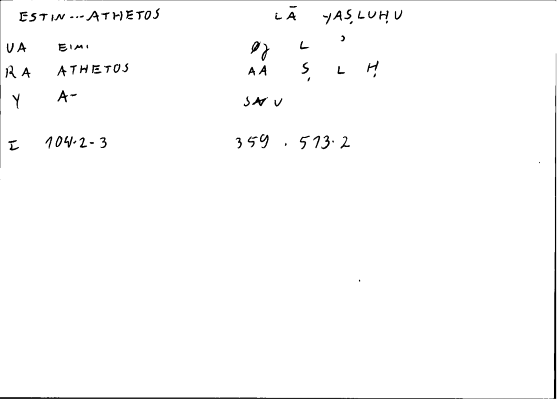 ESTIN...ATHETOS LĀ YAṢLUḤU
UA EIMI L ʾ
RA ATHETOS AA Ṣ L Ḥ
Y A-
I 104.2-3 359.573.2